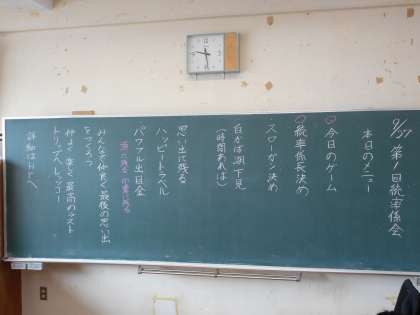 9/27 第一回統率係会
本日のメニュー
今日のゲーム
統率係長決め
スローガン決め
白かば湖下見
(時間あれば)
思い出に残る
ハッピートラベル
パワフル出日金
みんなで仲良く最後の思い出
をつくろう
仲よく楽しく最高のラスト
トリップへレッツゴー
詳細はHPへ